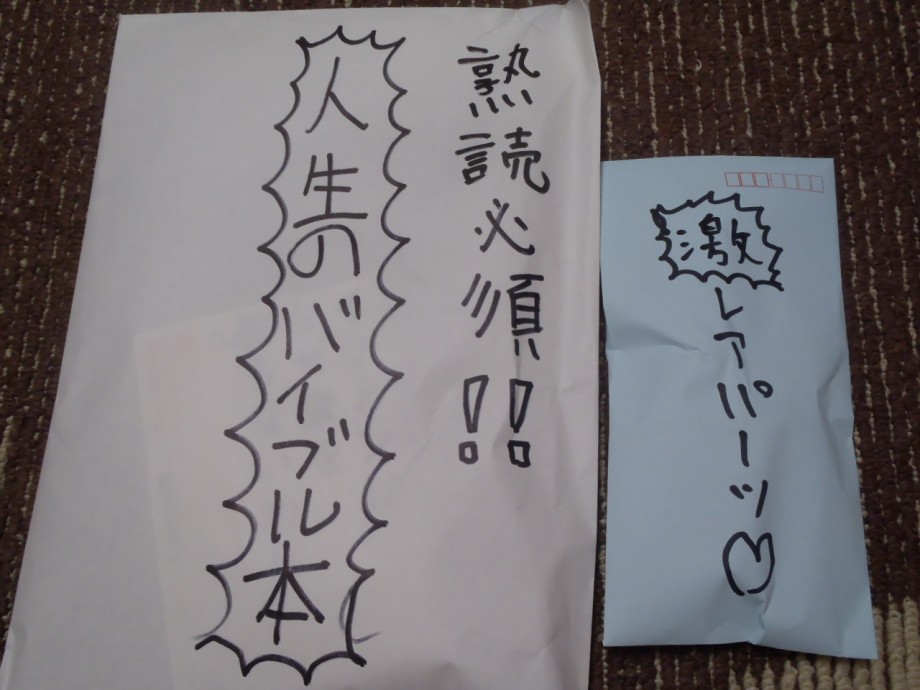 熟読必須!!
人生のバイブル本
激レアパーツ♡